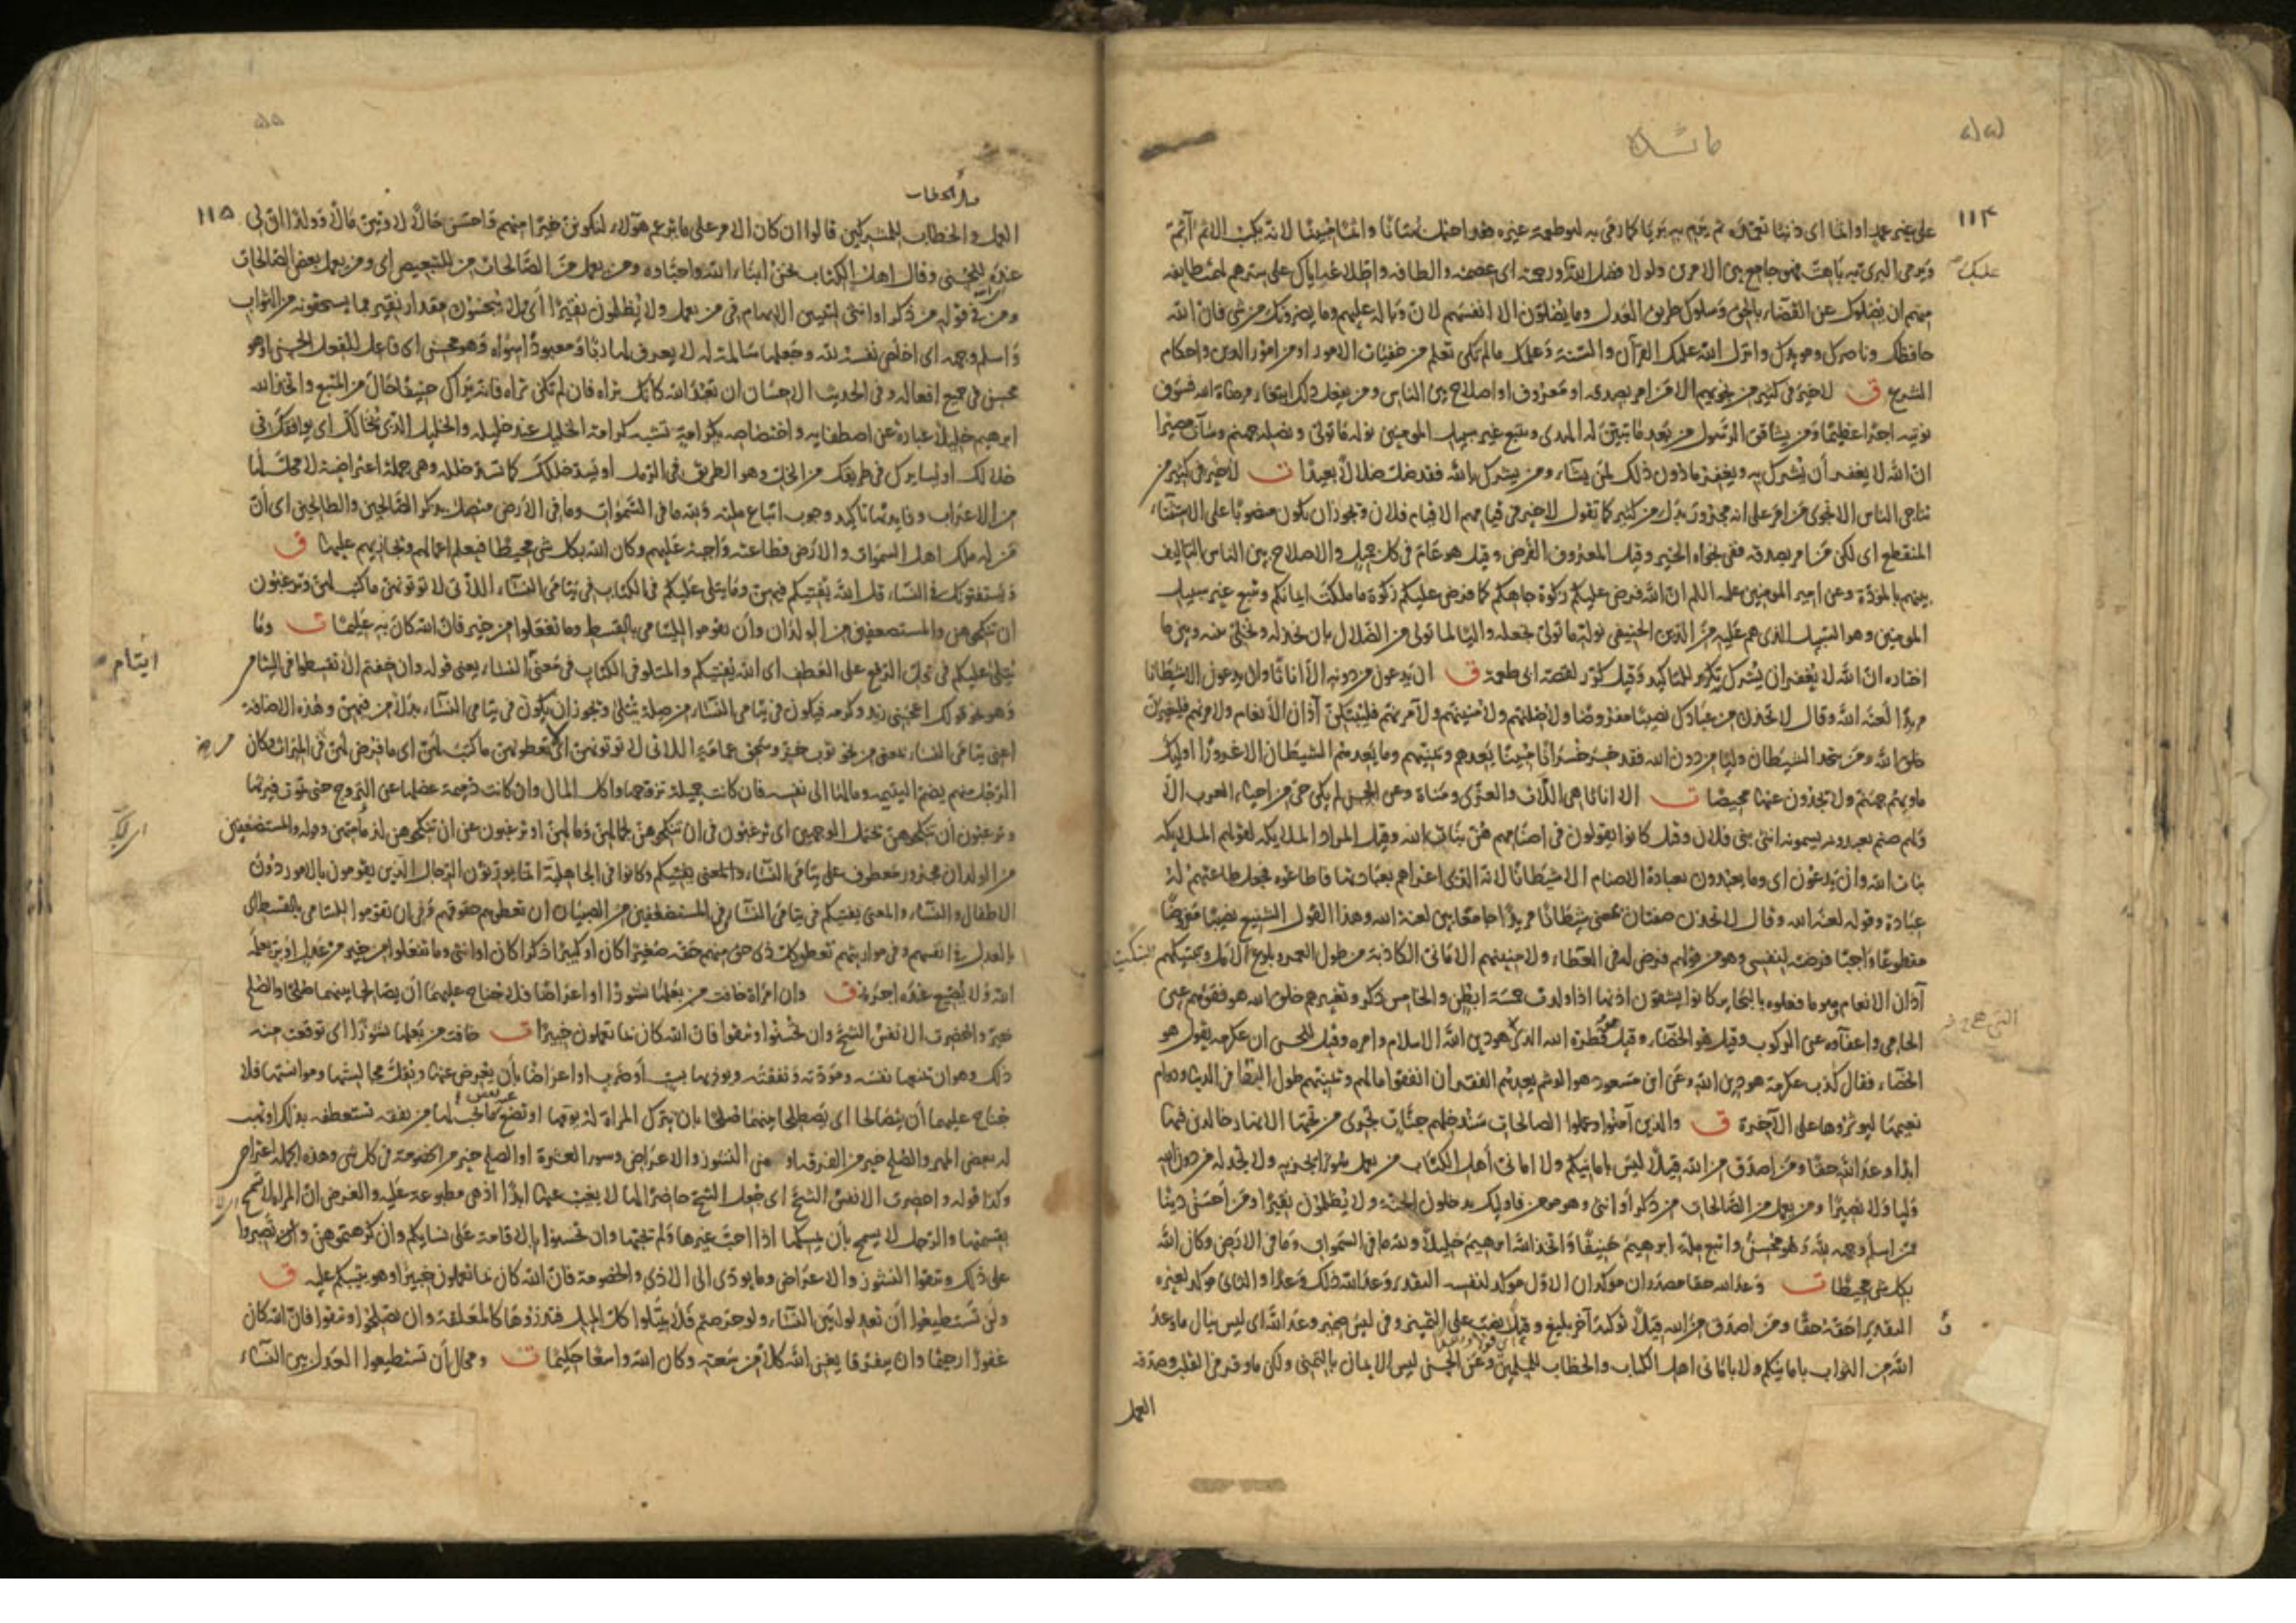 ١١٤
على غير عمد او اثما اى ذنبا تعمّده ثم يرم به بريا كما رمى به لبو طعمة غيره فقد احتمل بهتانا واثما مبينا لانه بكسب الاثم آثم
وبرمى البرى به باهت فهو جامع بين الامرين ولولا فضل الله عليك ورحمته اى عصمته والطافه واطلاعه اياك على سرهم لهمت طايفة
منهم ان يضلوك عن القضاء بالحق وسلوك طريق العدل وما يضلون الا انفسهم لان وباله عليهم وما يضرونك من شى فان الله
حافظك وناصرك ومويدك وانزل الله عليك القرآن والسنة وعلمك مالم تكن تعلم من خفيات الامور او من امور الدين واحكام
الشرع ق لا خير فى كثير من نجويهم الا من امر بصدقه او معروف او اصلاح بين الناس ومن يفعل ذلك ابتغاء مرضاة الله فسوف
نوتيه اجرا عظيما ومن يشاقق الرسول من بعد ما تبين له الهدى ويتبع غير سبيل المومنين نوله ما تولى ونصله جهنم وساءت مصيرا
ان الله لا يغفر أن يشرك به ويغفر ما دون ذلك لمن يشاء ومن يشرك بالله فقد ضل ضلالا بعيدا ت لا خير فى كثير من
تناجى الناس الا نجوى من امر على انه مجرور بدل من كثير كما تقول لا خير فى قيامهم الا قيام فلان ويجوز ان يكون منصوبا على الاستثناء
المنقطع اى لكن من امر بصدقه ففى نجواه الخير وقيل المعروف القرض وقيل هو عام فى كل جميل والاصلاح بين الناس التاليف
بينهم بالمودة وعن امير المومنين عليه السلام ان الله فرض عليكم زكوة جاهكم كما فرض عليكم زكوة ما ملكت ايمانكم ويتبع غير سبيل
المومنين وهو السبيل الذى هم عليه من الدين الحنيفى نوله ما تولى نجعله واليا لما تولى من الضلال بان نخذله ونخلى بينه وبين ما
اختاره ان الله لا يغفر ان يشرك تكرير للتاكيد وقيل كرر لقصة ابى طعمة ق ان يدعون من دونه الا اناثا وان يدعون الا شيطانا
مريدا لعنه الله وقال لاتخذن من عبادك نصيبا مفروضا ولاضلنهم ولامنينهم ولآمرنهم فليبتكن آذان الأنعام ولامرنهم فليغيرن
خلق الله ومن يتخذ الشيطان وليا من دون الله فقد خسر خسرانا مبينا يعدهم ويمنيهم وما يعدهم الشيطان الا غرورا اوليك
ماويهم جهنم ولا يجدون عنها محيصا ت الا اناثا هى اللات والعزى ومناة وعن الحسن لم يكن حى من احياء العرب الا
ولهم صنم يعبدونه يسمونه انثى بنى فلان وقيل كانوا يقولون فى اصنامهم هن بنات الله وقيل المراد الملايكه لقولهم الملايكه
بنات الله وان يدعون اى وما يعبدون بعبادة الاصنام الا شيطانا لانه الذى اغراهم بعبادتها فاطاعوه فجعل طاعتهم له
عبادة وقوله لعنه الله وقال لاتخذن صفتان بمعنى شيطانا مريدا جامعا بين لعنة الله وهذا القول الشنيع نصيبا مفروضا
مقطوعا واجبا فرضته لنفسى وهو من قولهم فرض له فى العطاء ولامنينهم الامانى الكاذبة من طول العمر وبلوغ الآمال وتبتيكهم
آذان الانعام هو ما فعلوه بالبحاير كانوا يشقون اذنها اذا ولدت خمسة ابطن والخامس ذكر وتغييرهم خلق الله هو فقؤهم عين
الحامى واعفاؤه عن الركوب وقيل هو الخصاء وقيل فطرة الله الذى هو دين الله الاسلام وامره وقيل للحسن ان عكرمه يقول هو
الخصاء فقال كذب عكرمة هو دين الله وعن ابن مسعود هو الوشم يعدهم الفقر ان انفقوا مالهم ويمنيهم طول البقاء فى الدنيا ودوام
نعيمها ليوثروها على الآخرة ق والذين آمنوا وعملوا الصالحات سندخلهم جنات تجرى من تحتها الانهار خالدين فيها
ابدا وعد الله حقا ومن اصدق من الله قيلا ليس بامانيكم ولا امانى أهل الكتاب من يعمل سوءا يجز به ولا يجد له من دون الله
وليا ولا نصيرا ومن يعمل من الصالحات من ذكر أو انثى وهو مومن فاوليك يدخلون الجنة ولا يظلمون نقيرا ومن احسن دينا
ممن اسلم وجهه لله وهو محسن واتبع ملة ابرهيم حنيفا واتخذ الله ابرهيم خليلا ولله ما فى السموات وما فى الارض وكان الله
بكل شى محيطا ت وعد الله حقا مصدران موكدان الاول موكد لنفسه التقدير وعد الله ذلك وعدا والثانى موكد لغيره
التقدير احقه حقا ومن اصدق من الله قيلا توكيد آخر بليغ وفى ليس ضمير وعد الله اى ليس ينال ما وعد
الله من الثواب بامانيكم ولا بامانى اهل الكتاب والخطاب للمسلمين وعن الحسن ليس الايمان بالتمنى ولكن ما وقر فى القلب وصدقه
العمل
١١٥
العمل والخطاب للمشركين قالوا ان كان الامر على ما يزعم هؤلاء لنكونن خيرا منهم واحسن حالا لاوتين مالا وولدا ان لى
عنده للحسنى وقال اهل الكتاب نحن ابناء الله واحباؤه ومن يعمل من الصالحات من للتبعيض اى ومن يعمل بعض الصالحات
ومن فى قوله من ذكر او انثى لتبيين الابهام فى من يعمل ولا يظلمون نقيرا اى ولا يبخسون مقدار نقير مما يستحقونه من الثواب
واسلم وجهه اى اخلص نفسه لله وجعلها سالمة له لا يعرف لها ربا ومعبودا سواه وهو محسن اى فاعل للفعل الحسن او هو
محسن فى جميع افعاله وفى الحديث الاحسان ان تعبد الله كانك تراه فان لم تكن تراه فانه يراك حنيفا حال من المتبع واتخذ الله
ابرهيم خليلا عبارة عن اصطفايه واختصاصه بكرامة تشبه كرامة الخليل عند خليله والخليل الذى يخالك اى يوافقك فى
خلالك او يسايرك فى طريقك من الخل وهو الطريق فى الرمل او يسد خللك كما تسد خلله وهى جملة اعتراضية لا محل لها
من الاعراب وفايدتها تاكيد وجوب اتباع ملته ولله ما فى السموات وما فى الارض متصل بذكر الصالحين والطالحين اى ان
من له ملك اهل السموات والارض فطاعته واجبة عليهم وكان الله بكل شى محيطا فيعلم اعمالهم ويجازيهم عليها ق
ويستفتونك فى النساء قل الله يفتيكم فيهن وما يتلى عليكم فى الكتاب فى يتامى النساء اللاتى لا توتونهن ما كتب لهن وترغبون
ان تنكحوهن والمستضعفين من الولدان وأن تقوموا لليتامى بالقسط وما تفعلوا من خير فان الله كان به عليما ت وما
يتلى عليكم فى محل الرفع على العطف اى الله يفتيكم والمتلو فى الكتاب فى معنى النساء يعنى قوله وان خفتم الا تقسطوا فى اليتامى
وهو نحو قولك اعجبنى زيد وكرمه فيكون فى يتامى النساء من صلة يتلى ويجوز ان يكون فى يتامى النساء بدلا من فيهن وهذه الاضافة
اعنى يتامى النساء بمعنى من نحو ثوب خز وسحق عمامة اللاتى لا توتونهن اى لا تعطونهن ما كتب لهن اى ما فرض لهن فى الميراث وكان
الرجل منهم يضم اليتيمه ومالها الى نفسه فان كانت جميلة تزوجها واكل المال وان كانت دميمة عضلها عن التزوج حتى تموت فيرثها
وترغبون أن تنكحوهن يحتمل الوجهين اى ترغبون فى ان تنكحوهن لجمالهن ومالهن او ترغبون عن ان تنكحوهن لدمامتهن وقوله والمستضعفين
من الولدان مجرور معطوف على يتامى النساء والمعنى يفتيكم وكانوا فى الجاهلية انما يورثون الرجال الذين يقومون بالامور دون
الاطفال والنساء والمعنى يفتيكم فى يتامى النساء وفى المستضعفين من الصبيان ان تعطوهم حقوقهم وفى ان تقوموا لليتامى بالقسط اى
بالعدل فى انفسهم وفى مواريثهم تعطون كل ذى حق منهم حقه صغيرا كان او كبيرا ذكرا كان او انثى وما تفعلوا من خير من عدل او بر يعلمه
الله ولا يضيع عنده اجره ق وان امراة خافت من بعلها نشوزا او اعراضا فلا جناح عليهما أن يصالحا بينهما صلحا والصلح
خير واحضرت الانفس الشح وان تحسنوا وتتقوا فان الله كان بما تعملون خبيرا ت خافت من بعلها نشوزا اى توقعت منه
ذلك وهو ان يمنعها نفسه ومودته ونفقته ويوذيها بسب او ضرب او اعراضا بأن يعرض عنها ويقل مجالستها وموانستها فلا
جناح عليهما أن يصالحا اى يصطلحا بينهما صلحا بان تترك المراة له يومها او تضع عنه بعض ما يجب لها من نفقه تستعطفه بذلك او تهب
له بعض المهر والصلح خير من الفرقه او من النشوز والاعراض وسوء العشرة او الصلح خير من الخصومة فى كل شى وهذه الجملة اعتراض
وكذا قوله واحضرت الانفس الشح اى جعل الشح حاضرا لها لا يغيب عنها ابدا اذ هى مطبوعة عليه والغرض ان المراة لا تسمح
بقسمتها والرجل لا يسمح بأن يمسكها اذا احب غيرها ولم يحبها وان تحسنوا بالاقامة على نسايكم وان كرهتموهن وتصبروا
على ذلك وتتقوا النشوز والاعراض وما يودى الى الاذى والخصومة فان الله كان بما تعملون خبيرا وهو يثيبكم عليه ق
ولن تستطيعوا أن تعدلوا بين النساء ولو حرصتم فلا تميلوا كل الميل فتذروها كالمعلقة وان تصلحوا وتتقوا فان الله كان
غفورا رحيما وان يتفرقا يغن الله كلا من سعته وكان الله واسعا حكيما ت ومحال أن تستطيعوا العدل بين النساء